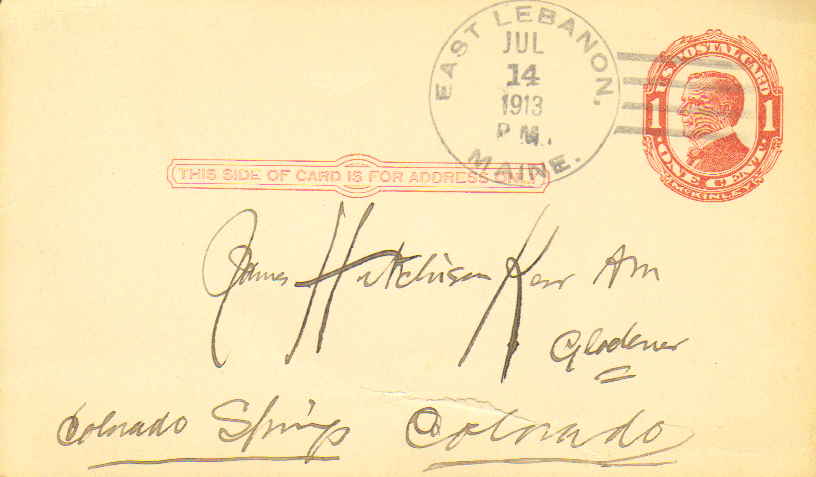 EAST LEBANON,
JUL
14
1913
P M.
MAINE.
U.S. POSTAL CARD
1 1
McKINLEY
THIS SIDE OF CARD IS FOR ADDRESS ONLY
James Hutchison Kerr Am
Colorado Springs Colorado